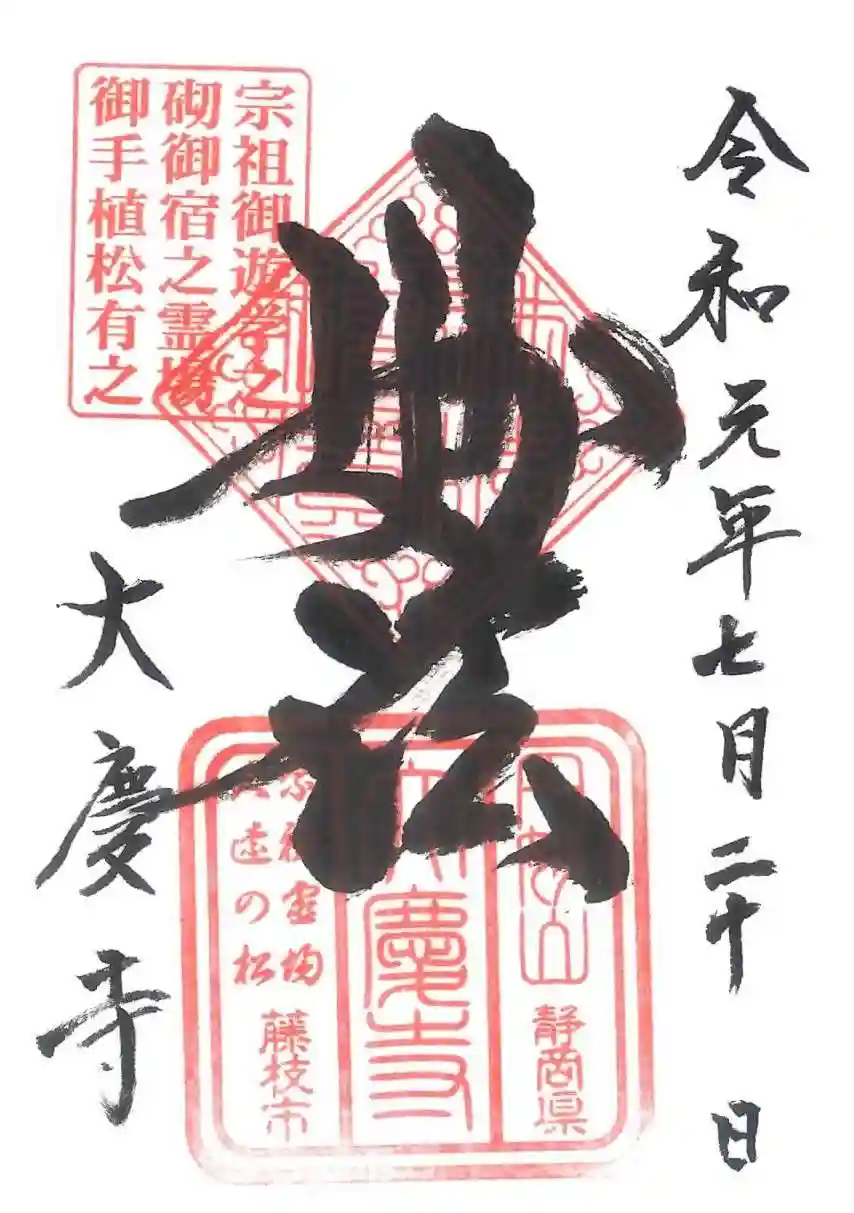 令和元年七月二十日
妙法
大慶寺
宗祖御遊学之
砌御宿之霊場
御手植松有之
静岡県
円妙山
大慶寺
宗祖霊場
久遠の松
藤枝市